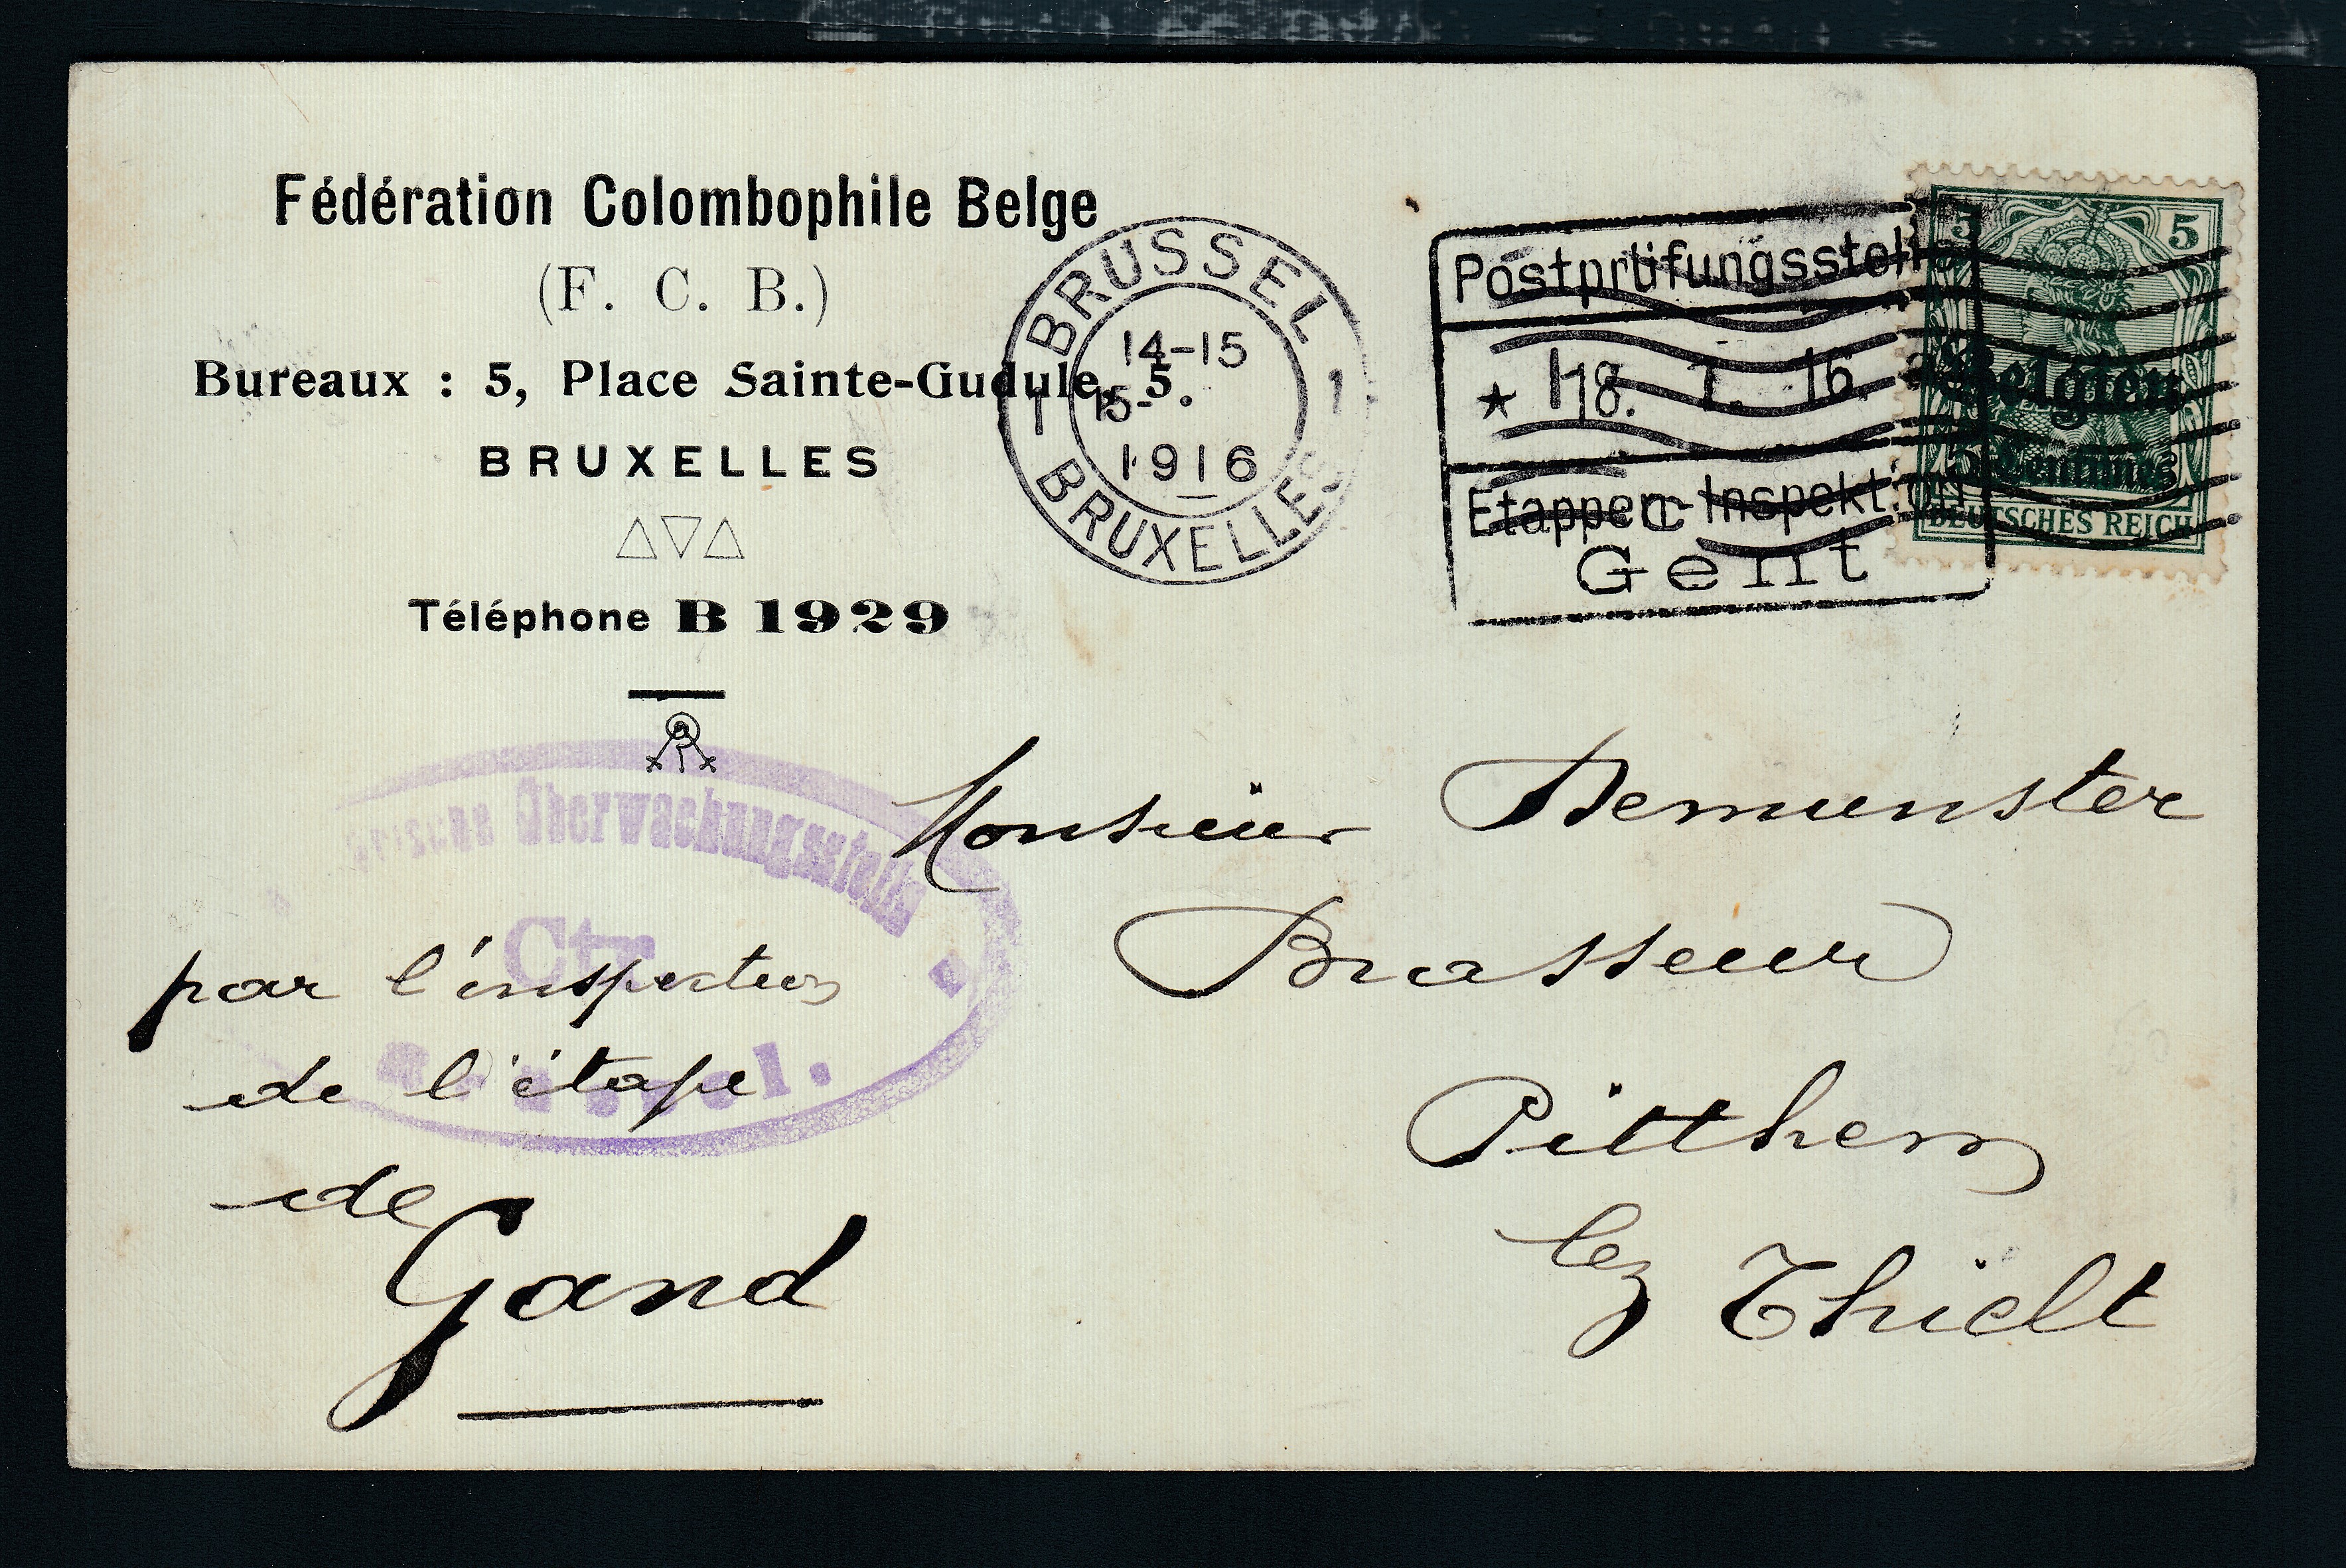 Fédération Colombophile Belge
(F. C. B.)
Bureaux : 5, Place Sainte-Gudule, 5.
BRUXELLES
Téléphone B 1929
BRUSSEL
1 1
14-15
15-
1916
BRUXELLES
Postprüfungsstelle
★ 18. 1. 16.
Etappen-Inspektion
Gent
5 5
Belgien
5 Centimes
DEUTSCHES REICH
Überwachungsstelle
Ctr.
Monsieur Demunster
Brasseur
Pitthem
lez Thielt
par l'inspection
de l'étape
de
Gand